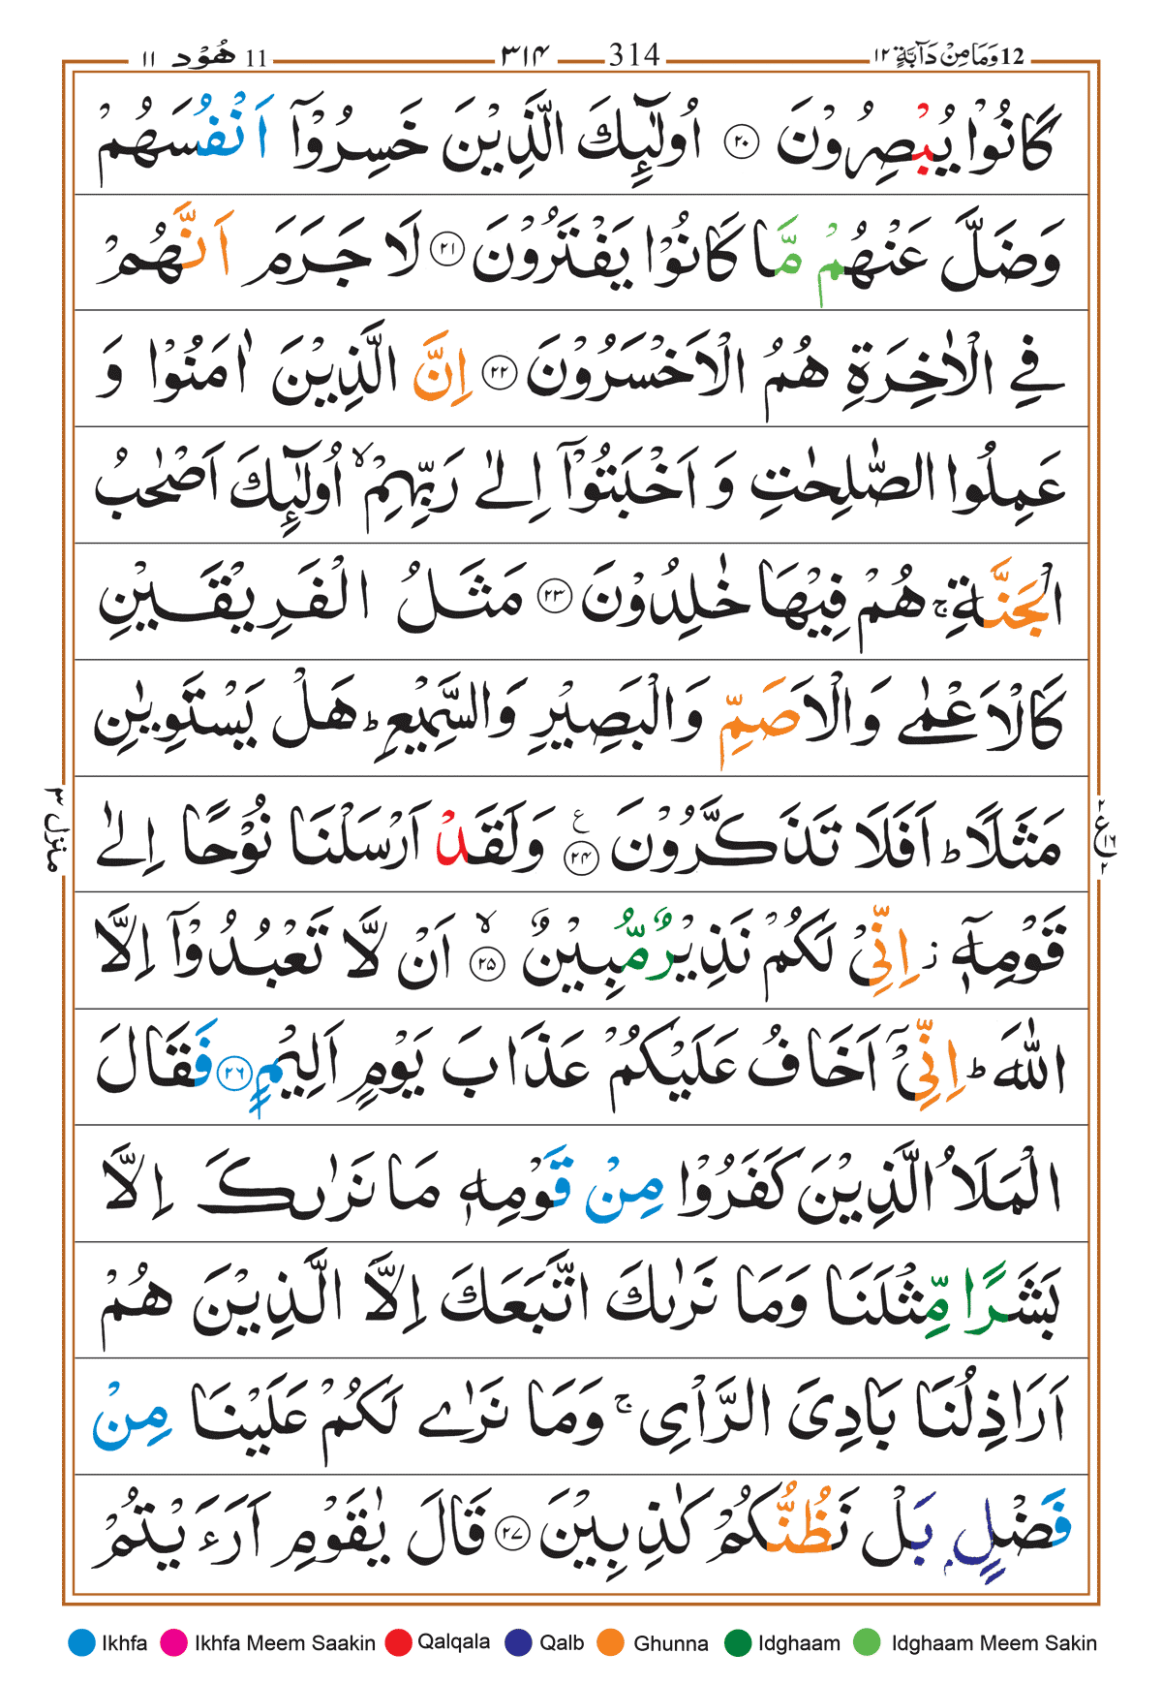 12 وَمَا مِنْ دَآبَّةٍ ١٢ 314 ٣١٤ 11 هُوْد ١١
كَانُوْا يُبْصِرُوْنَ ۝٢٠ اُولٰٓئِكَ الَّذِيْنَ خَسِرُوْٓا اَنْفُسَهُمْ
وَضَلَّ عَنْهُمْ مَّا كَانُوْا يَفْتَرُوْنَ ۝٢١ لَا جَرَمَ اَنَّهُمْ
فِي الْاٰخِرَةِ هُمُ الْاَخْسَرُوْنَ ۝٢٢ اِنَّ الَّذِيْنَ اٰمَنُوْا وَ
عَمِلُوا الصّٰلِحٰتِ وَ اَخْبَتُوْٓا اِلٰى رَبِّهِمْ ۙ اُولٰٓئِكَ اَصْحٰبُ
الْجَنَّةِ ۚ هُمْ فِيْهَا خٰلِدُوْنَ ۝٢٣ مَثَلُ الْفَرِيْقَيْنِ
كَالْاَعْمٰى وَالْاَصَمِّ وَالْبَصِيْرِ وَالسَّمِيْعِ ؕ هَلْ يَسْتَوِيٰنِ
مَثَلًا ؕ اَفَلَا تَذَكَّرُوْنَ ۝٢٤ ع وَلَقَدْ اَرْسَلْنَا نُوْحًا اِلٰى
قَوْمِهٖٓ ز اِنِّيْ لَكُمْ نَذِيْرٌ مُّبِيْنٌ ۝٢٥ ۙ اَنْ لَّا تَعْبُدُوْٓا اِلَّا
اللّٰهَ ؕ اِنِّيْٓ اَخَافُ عَلَيْكُمْ عَذَابَ يَوْمٍ اَلِيْمٍ ۝٢٦ فَقَالَ
الْمَلَاُ الَّذِيْنَ كَفَرُوْا مِنْ قَوْمِهٖ مَا نَرٰىكَ اِلَّا
بَشَرًا مِّثْلَنَا وَمَا نَرٰىكَ اتَّبَعَكَ اِلَّا الَّذِيْنَ هُمْ
اَرَاذِلُنَا بَادِيَ الرَّاْيِ ۚ وَمَا نَرٰى لَكُمْ عَلَيْنَا مِنْ
فَضْلٍۭ بَلْ نَظُنُّكُمْ كٰذِبِيْنَ ۝٢٧ قَالَ يٰقَوْمِ اَرَءَيْتُمْ
منزل ٣
٢ ع ١٦ ٢
Ikhfa Ikhfa Meem Saakin Qalqala Qalb Ghunna Idghaam Idghaam Meem Sakin